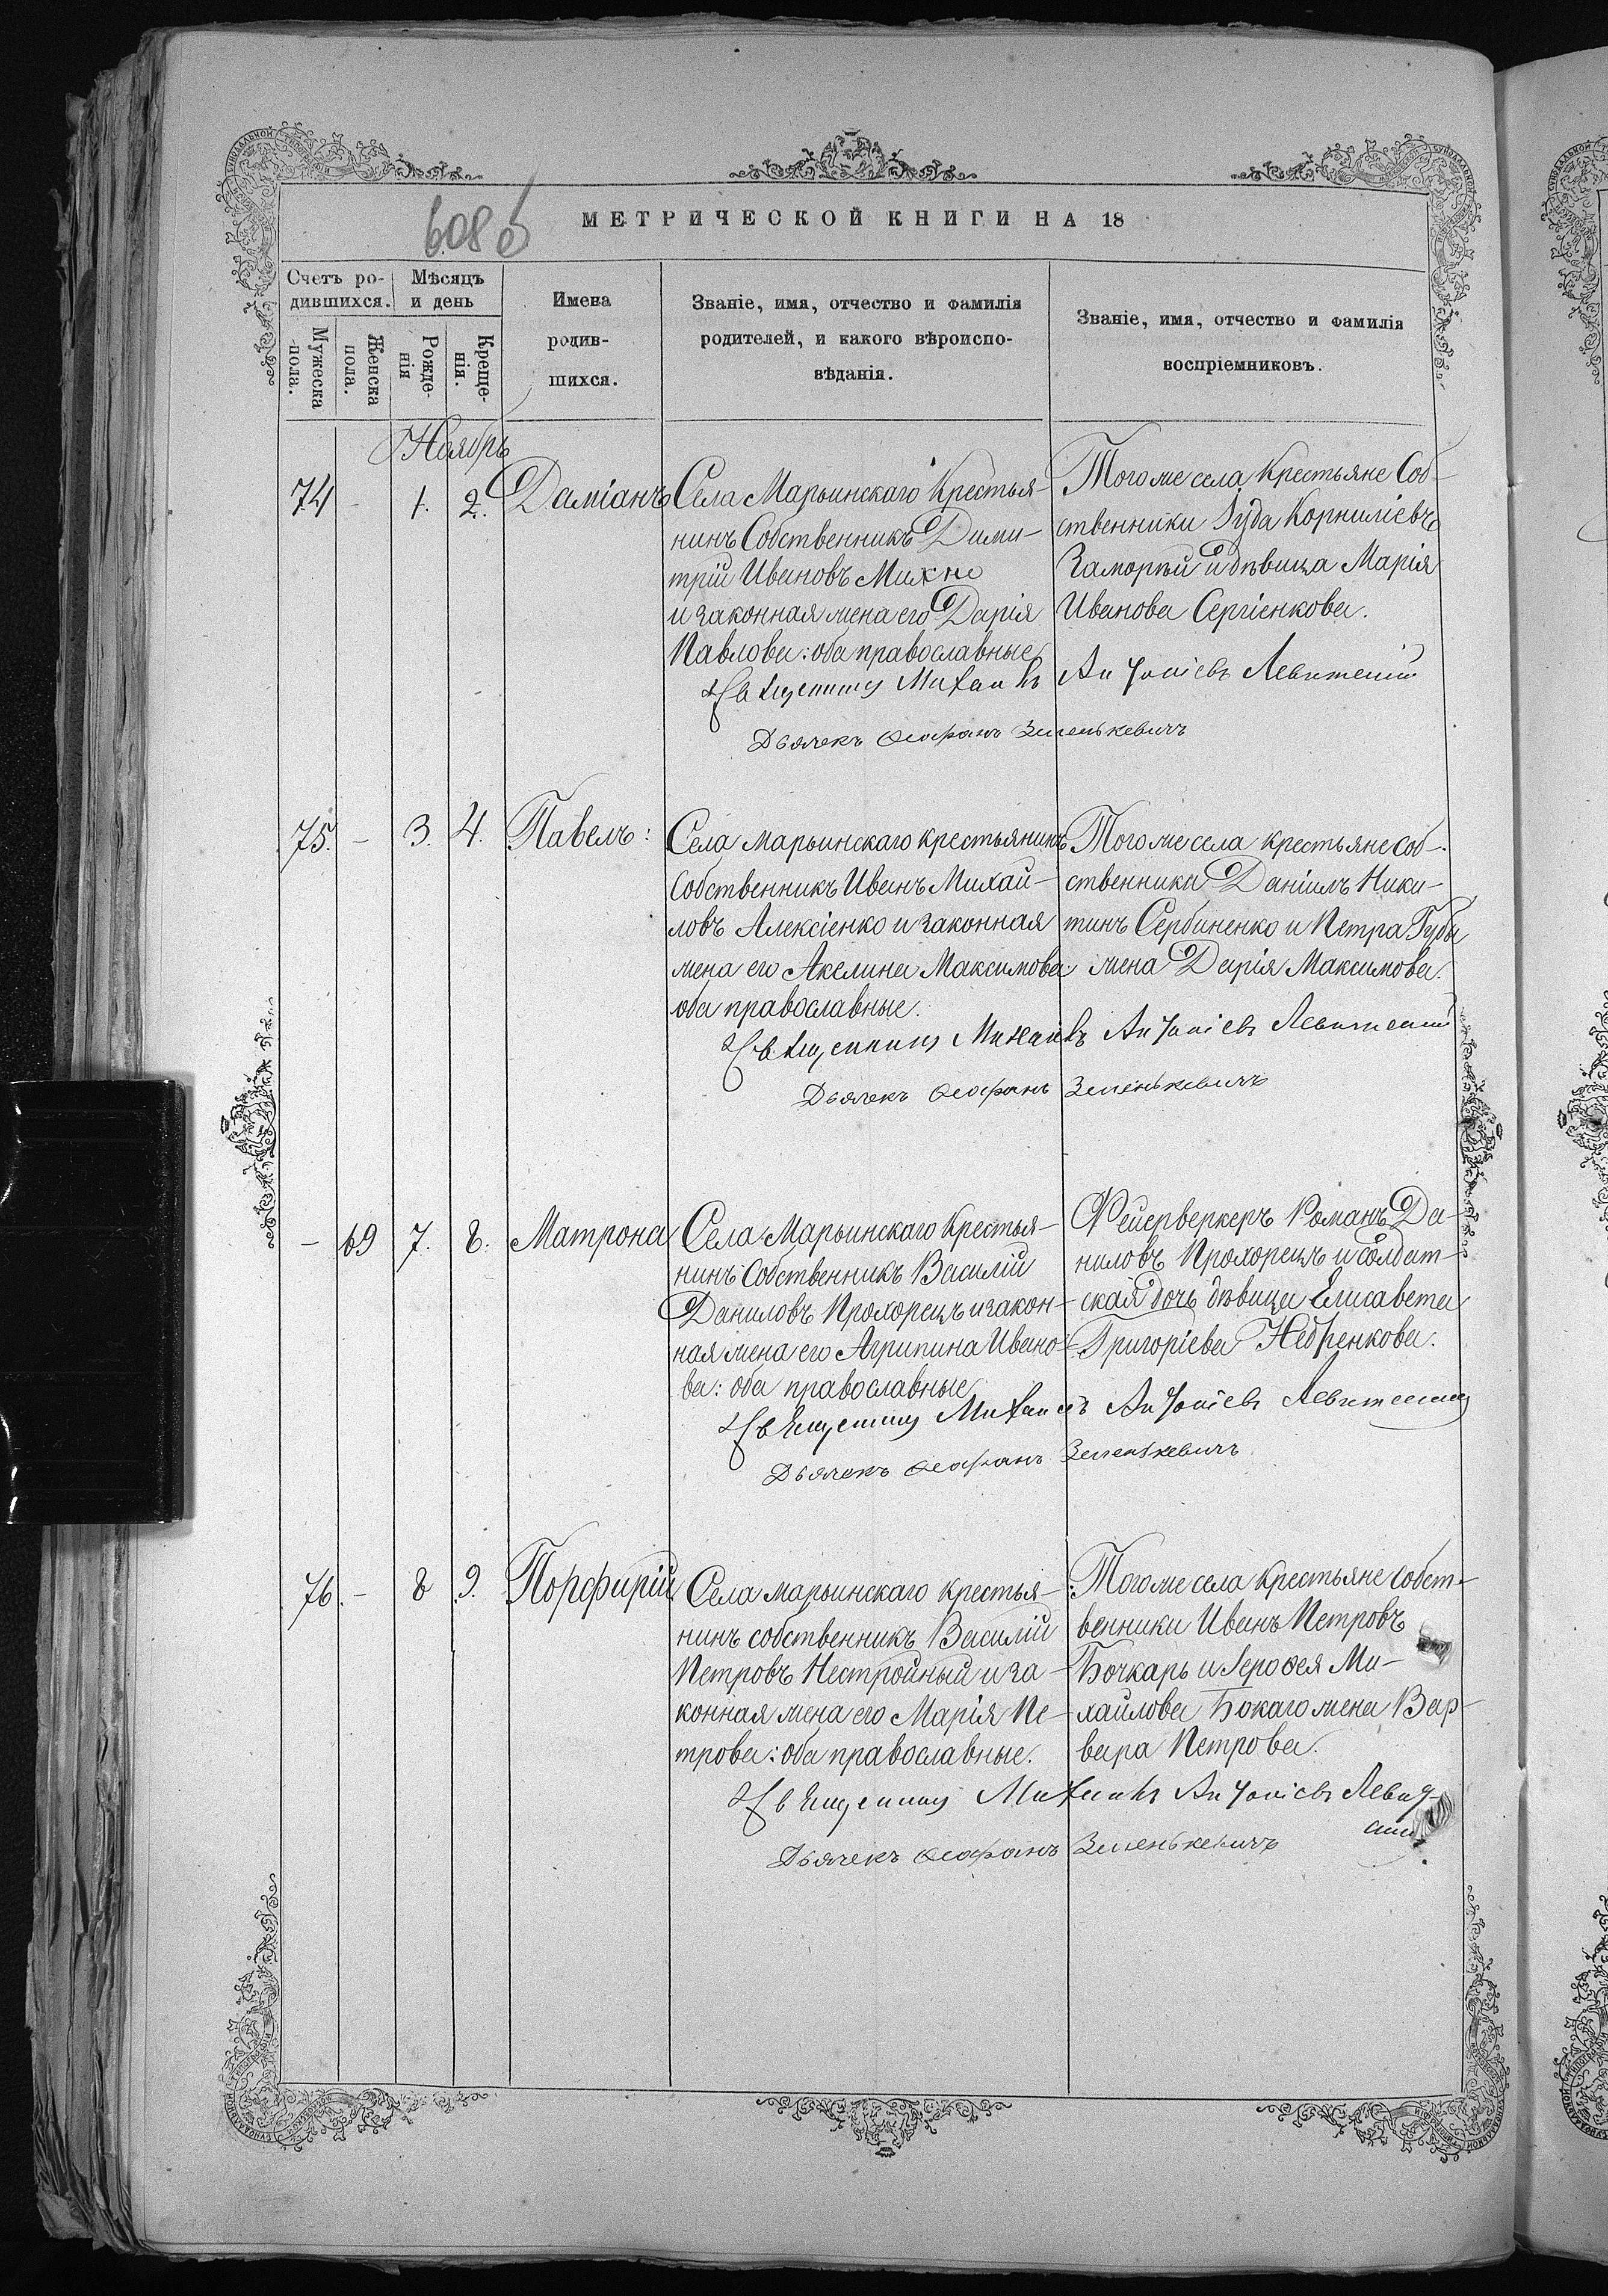 608 об
МЕТРИЧЕСКОЙ КНИГИ НА 18
Счетъ ро-
дившихся.
Мѣсяцъ
и день
Имена
родив-
шихся.
Званіе, имя, отчество и фамилія
родителей, и какого вѣроиспо-
вѣданія.
Званіе, имя, отчество и фамилія
воспріемниковъ.
Мужеска
пола.
Женска
пола.
Рожде-
нія
Креще-
нія.
Ноябрь
74 - 1. 2. Даміанъ
Села Марьинскаго Крестья-
нинъ Собственникъ Дими-
трій Ивановъ Михно
и законная жена его Дарія
Павлова: оба православные
Того же села Крестьяне Соб-
ственники Іуда Корниліевъ
Заморѣй и дѣвица Марія
Иванова Сергіенкова.
Священникъ Михаилъ Антоніевъ Левитскій
Дьячекъ Ѳеофанъ Зиенькевичъ
75. - 3. 4. Павелъ:
Села Марьинскаго крестьянинъ
Собственникъ Иванъ Михай-
ловъ Алексіенко и законная
жена его Акелина Максимова
оба православные.
Того же села крестьяне соб-
ственники Даніилъ Ники-
тинъ Сербиненко и Петра Губы
жена Дарія Максимова.
Священникъ Михаилъ Антоніевъ Левитскій
Дьячекъ Ѳеофанъ Зиенькевичъ
- 69 7. 8. Матрона
Села Марьинскаго Крестья-
нинъ Собственникъ Василій
Даниловъ Прохорецъ и закон-
ная жена его Агрипина Ивано-
ва: оба православные
Фейерверкеръ Романъ Да-
ниловъ Прохорецъ и солдат-
ская дочь дѣвица Елисавета
Григоріева
Священникъ Михаилъ Антоніевъ Левитскій
Дьячекъ Ѳеофанъ Зиенькевичъ
76. - 8 9. Порфирій
Села марьинскаго крестья-
нинъ собственникъ Василій
Петровъ Нестройный и за-
конная жена его Марія Пе-
трова: оба православные.
Того же села крестьяне собст-
венники Иванъ Петровъ
Бочкарь и Іероѳея Ми-
хайлова Бокаго жена Вар-
вара Петрова.
Священникъ Михаилъ Антоніевъ Левит-
скій
Дьячекъ Ѳеофанъ Зиенькевичъ